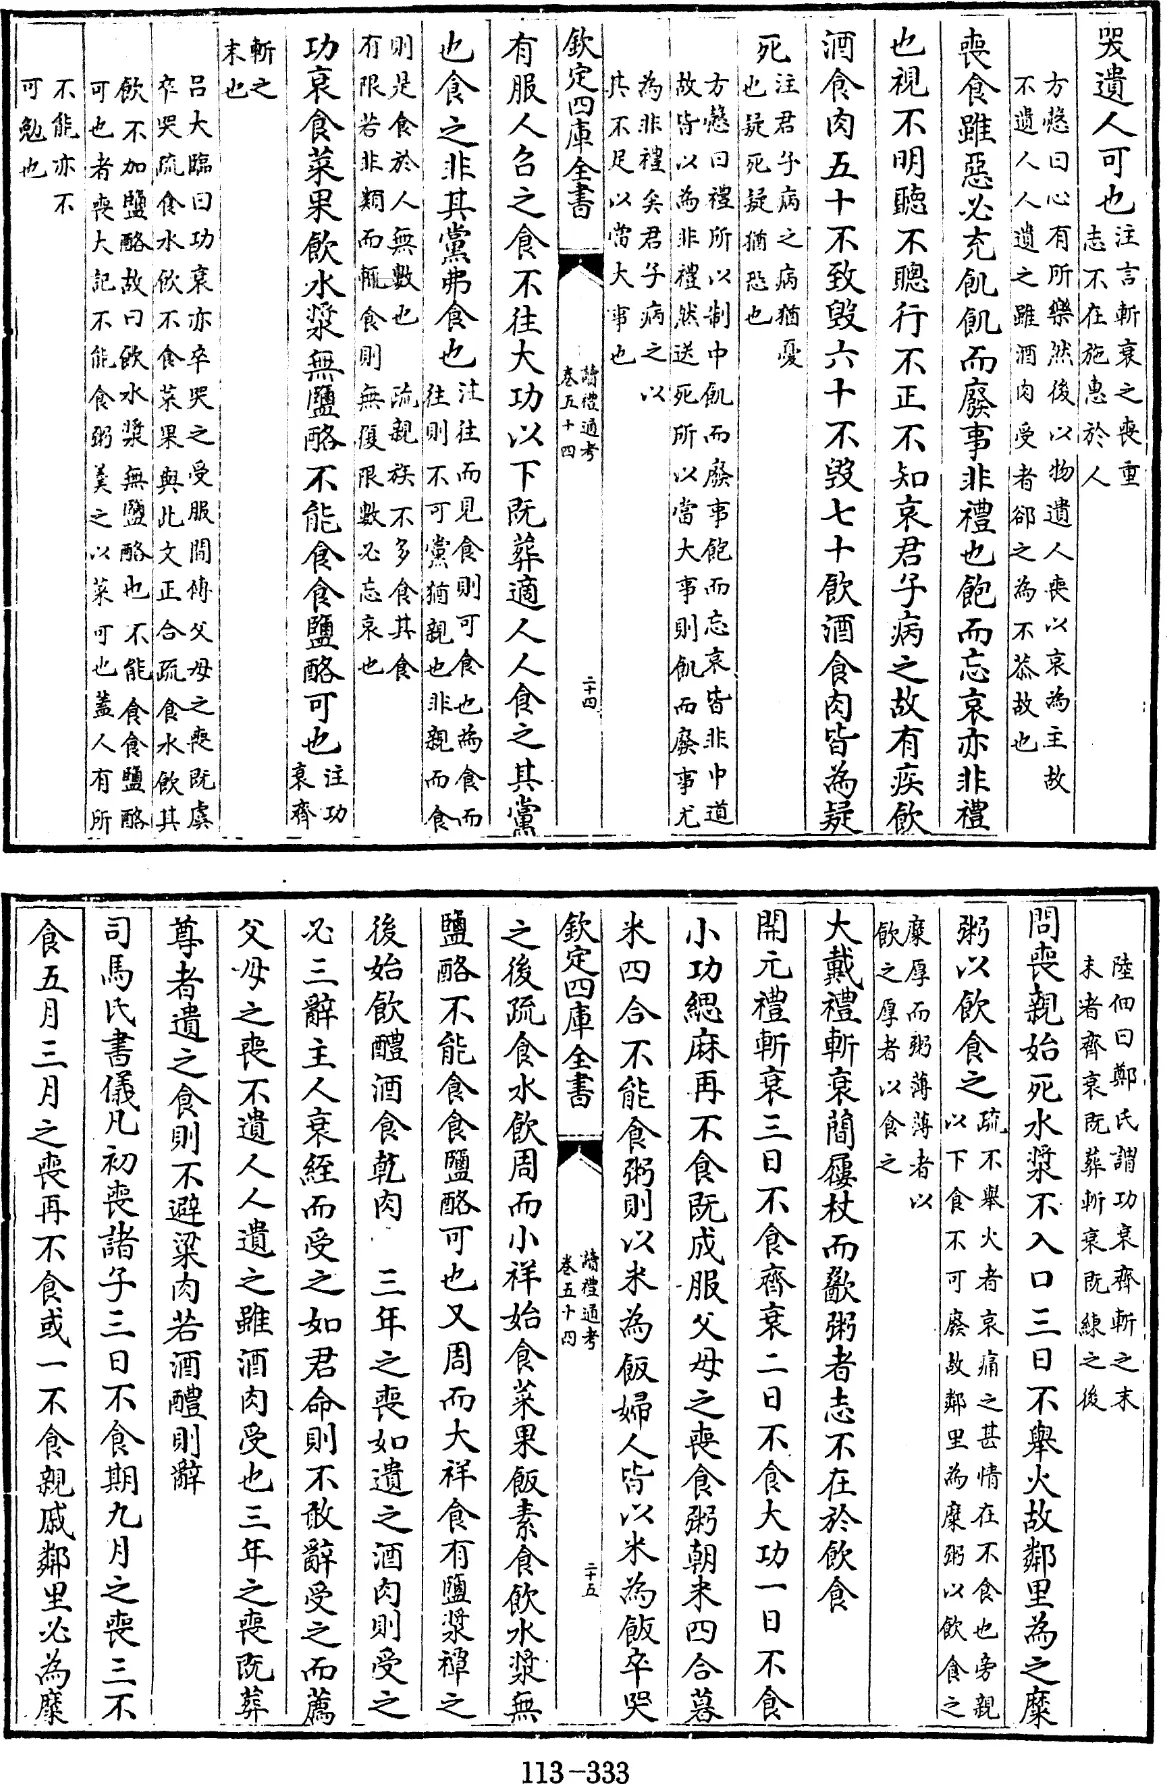 哭遺人可也注言斬衰之喪重
志不在施惠於人
方慤曰心有所樂然後以物遺人喪以哀為主故
不遺人人遺之雖酒肉受者卻之為不恭故也
喪食雖惡必充飢飢而廢事非禮也飽而忘哀亦非禮
也視不明聽不聰行不正不知哀君子病之故有疾飲
酒食肉五十不致毀六十不毀七十飲酒食肉皆為疑
死注君子病之病猶憂
也疑死疑猶恐也
方慤曰禮所以制中飢而廢事飽而忘哀皆非中道
故皆以為非禮然送死所以當大事則飢而廢事尤
為非禮矣君子病之以
其不足以當大事也
欽定四庫全書
讀禮通考
卷五十四
二十四
有服人召之食不往大功以下既葬適人人食之其黨
也食之非其黨弗食也注往而見食則可食也為食而
往則不可黨猶親也非親而食
則是食於人無數也 流親族不多食其食
有限若非類而輒食則無復限數必忘哀也
功衰食菜果飲水漿無鹽酪不能食食鹽酪可也注功
衰齊
斬之
末也
呂大臨曰功衰亦卒哭之受服間傳父母之喪既虞
卒哭疏食水飲不食菜果與此文正合疏食水飲其
飲不加鹽酪故曰飲水漿無鹽酪也不能食食鹽酪
可也者喪大記不能食粥羹之以菜可也蓋人有所
不能亦不
可勉也
陸佃曰鄭氏謂功衰齊斬之末
末者齊衰既葬斬衰既練之後
問喪親始死水漿不入口三日不舉火故鄰里為之糜
粥以飲食之疏不舉火者哀痛之甚情在不食也旁親
以下食不可廢故鄰里為糜粥以飲食之
糜厚而粥薄薄者以
飲之厚者以食之
大戴禮斬衰蕑屨杖而歠粥者志不在於飲食
開元禮斬衰三日不食齊衰二日不食大功一日不食
小功緦麻再不食既成服父母之喪食粥朝米四合暮
米四合不能食粥則以米為飯婦人皆以米為飯卒哭
欽定四庫全書
讀禮通考
卷五十四
二十五
之後疏食水飲周而小祥始食菜果飯素食飲水漿無
鹽酪不能食食鹽酪可也又周而大祥食有鹽漿禫之
後始飲醴酒食乾肉 三年之喪如遺之酒肉則受之
必三辭主人衰絰而受之如君命則不敢辭受之而薦
父母之喪不遺人人遺之雖酒肉受也三年之喪既葬
尊者遺之食則不避粱肉若酒醴則辭
司馬氏書儀凡初喪諸子三日不食期九月之喪三不
食五月三月之喪再不食或一不食親戚鄰里必為糜
113-333